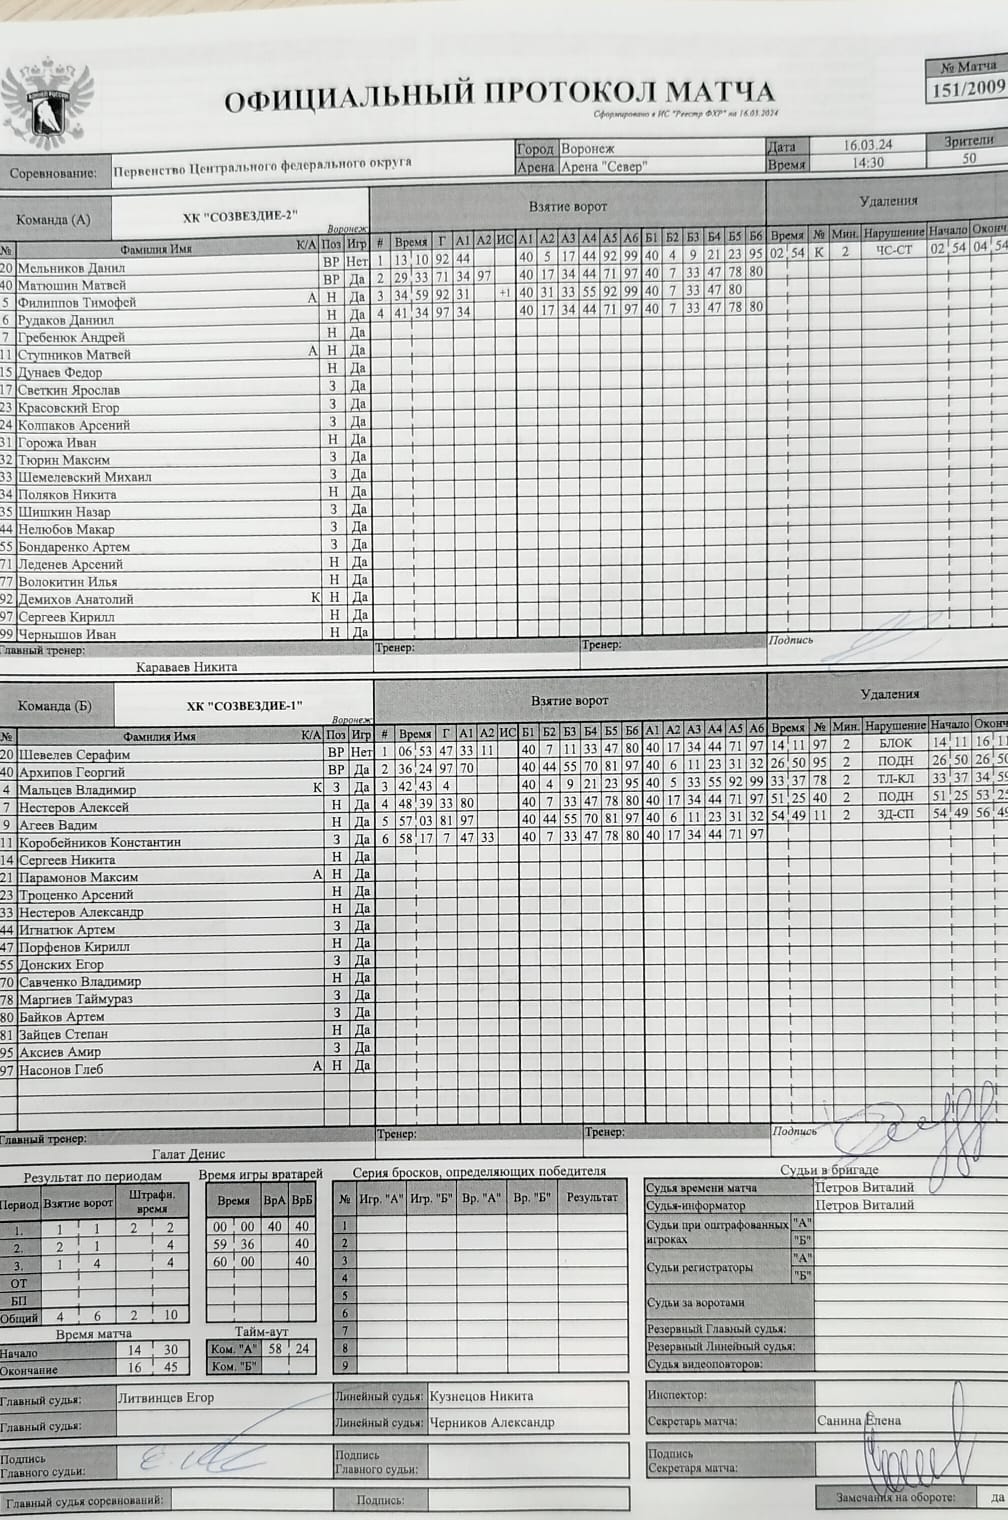 № Матча
151/2009
ОФИЦИАЛЬНЫЙ ПРОТОКОЛ МАТЧА
Сформировано в ИС "Реестр ФХР" на 16.03.2024
Соревнование: Первенство Центрального федерального округа Город Воронеж Дата 16.03.24 Зрители
Арена Арена "Север" Время 14:30 50
Команда (А) ХК "СОЗВЕЗДИЕ-2" Воронеж Взятие ворот Удаления
№ Фамилия Имя К/А Поз Игр # Время Г А1 А2 ИС А1 А2 А3 А4 А5 А6 Б1 Б2 Б3 Б4 Б5 Б6 Время № Мин. Нарушение Начало Оконч.
20 Мельников Данил ВР Нет 1 13 10 92 44 40 5 17 44 92 99 40 4 9 21 23 95 02 54 К 2 ЧС-СТ 02 54 04 54
40 Матюшин Матвей ВР Да 2 29 33 71 34 97 40 17 34 44 71 97 40 7 33 47 78 80
5 Филиппов Тимофей А Н Да 3 34 59 92 31 +1 40 31 33 55 92 99 40 7 33 47 80
6 Рудаков Даниил Н Да 4 41 34 97 34 40 17 34 44 71 97 40 7 33 47 78 80
7 Гребенюк Андрей Н Да
11 Ступников Матвей А Н Да
15 Дунаев Федор Н Да
17 Светкин Ярослав З Да
23 Красовский Егор З Да
24 Колпаков Арсений З Да
31 Горожа Иван Н Да
32 Тюрин Максим З Да
33 Шемелевский Михаил З Да
34 Поляков Никита Н Да
35 Шишкин Назар З Да
44 Нелюбов Макар З Да
55 Бондаренко Артем З Да
71 Леденев Арсений Н Да
77 Волокитин Илья Н Да
92 Демихов Анатолий К Н Да
97 Сергеев Кирилл Н Да
99 Чернышов Иван Н Да
Главный тренер: Тренер: Тренер: Подпись
Караваев Никита
Команда (Б) ХК "СОЗВЕЗДИЕ-1" Воронеж Взятие ворот Удаления
№ Фамилия Имя К/А Поз Игр # Время Г А1 А2 ИС Б1 Б2 Б3 Б4 Б5 Б6 А1 А2 А3 А4 А5 А6 Время № Мин. Нарушение Начало Оконч
20 Шевелев Серафим ВР Нет 1 06 53 47 33 11 40 7 11 33 47 80 40 17 34 44 71 97 14 11 97 2 БЛОК 14 11 16 11
40 Архипов Георгий ВР Да 2 36 24 97 70 40 44 55 70 81 97 40 6 11 23 31 32 26 50 95 2 ПОДН 26 50 26 50
4 Мальцев Владимир К З Да 3 42 43 4 40 4 9 21 23 95 40 5 33 55 92 99 33 37 78 2 ТЛ-КЛ 33 37 34 59
7 Нестеров Алексей Н Да 4 48 39 33 80 40 7 33 47 78 80 40 17 34 44 71 97 51 25 40 2 ПОДН 51 25 53 25
9 Агеев Вадим Н Да 5 57 03 81 97 40 44 55 70 81 97 40 6 11 23 31 32 54 49 11 2 ЗД-СП 54 49 56 49
11 Коробейников Константин З Да 6 58 17 7 47 33 40 7 33 47 78 80 40 17 34 44 71 97
14 Сергеев Никита Н Да
21 Парамонов Максим А Н Да
23 Троценко Арсений Н Да
33 Нестеров Александр Н Да
44 Игнатюк Артем З Да
47 Порфенов Кирилл Н Да
55 Донских Егор З Да
70 Савченко Владимир Н Да
78 Маргиев Таймураз З Да
80 Байков Артем З Да
81 Зайцев Степан Н Да
95 Аксиев Амир З Да
97 Насонов Глеб А Н Да
Главный тренер: Тренер: Тренер: Подпись
Галат Денис
Результат по периодам Время игры вратарей Серия бросков, определяющих победителя Судьи в бригаде
Период Взятие ворот Штрафн. время Время ВрА ВрБ № Игр. "А" Игр. "Б" Вр. "А" Вр. "Б" Результат
Судья времени матча Петров Виталий
Судья-информатор Петров Виталий
1. 1 1 2 2 00 00 40 40 1 Судьи при оштрафованных игроках "А"
2. 2 1 4 59 36 40 2 "Б"
3. 1 4 4 60 00 40 3 Судьи регистраторы "А"
ОТ 4 "Б"
БП 5 Судьи за воротами
Общий 4 6 2 10 6
Время матча Тайм-аут 7 Резервный Главный судья:
Начало 14 30 Ком. "А" 58 24 8 Резервный Линейный судья:
Окончание 16 45 Ком. "Б" 9 Судья видеоповторов:
Главный судья: Литвинцев Егор Линейный судья: Кузнецов Никита Инспектор:
Главный судья: Линейный судья: Черников Александр Секретарь матча: Санина Елена
Подпись Главного судьи: Подпись Главного судьи: Подпись Секретаря матча:
Главный судья соревнований: Подпись: Замечания на обороте: да